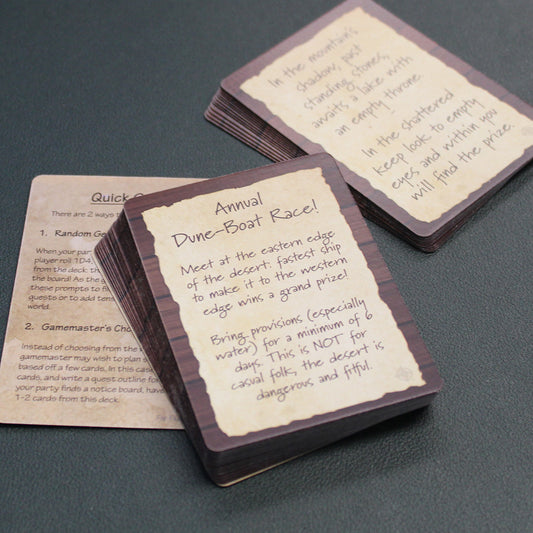 In the mountain's
shadow, past
standing stones,
awaits a lake with
an empty throne.
In the shattered
keep look to empty
eyes and within you
will find the prize.
Annual
Dune-Boat Race!
Meet at the eastern edge
of the desert: fastest ship
to make it to the western
edge wins a grand prize!
Bring provisions (especially
water) for a minimum of 6
days. This is NOT for
casual folk, the desert is
dangerous and fitful.
Quick
There are 2 ways
1. Random
When your
player roll 1D4,
from the deck: th
the board! As the
these prompts to
quests or to add
world.
2. Gamemaster's
Instead of choosing from the
gamemaster may wish to plan
based off a few cards. In this
cards, and write a quest outline for
your party finds a notice board, have
1-2 cards from this deck.